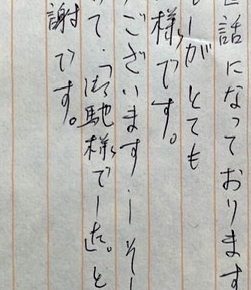 話になっております
ーがとても
様です。
ございます…そー
て…「御馳走様でした。」と
謝です。